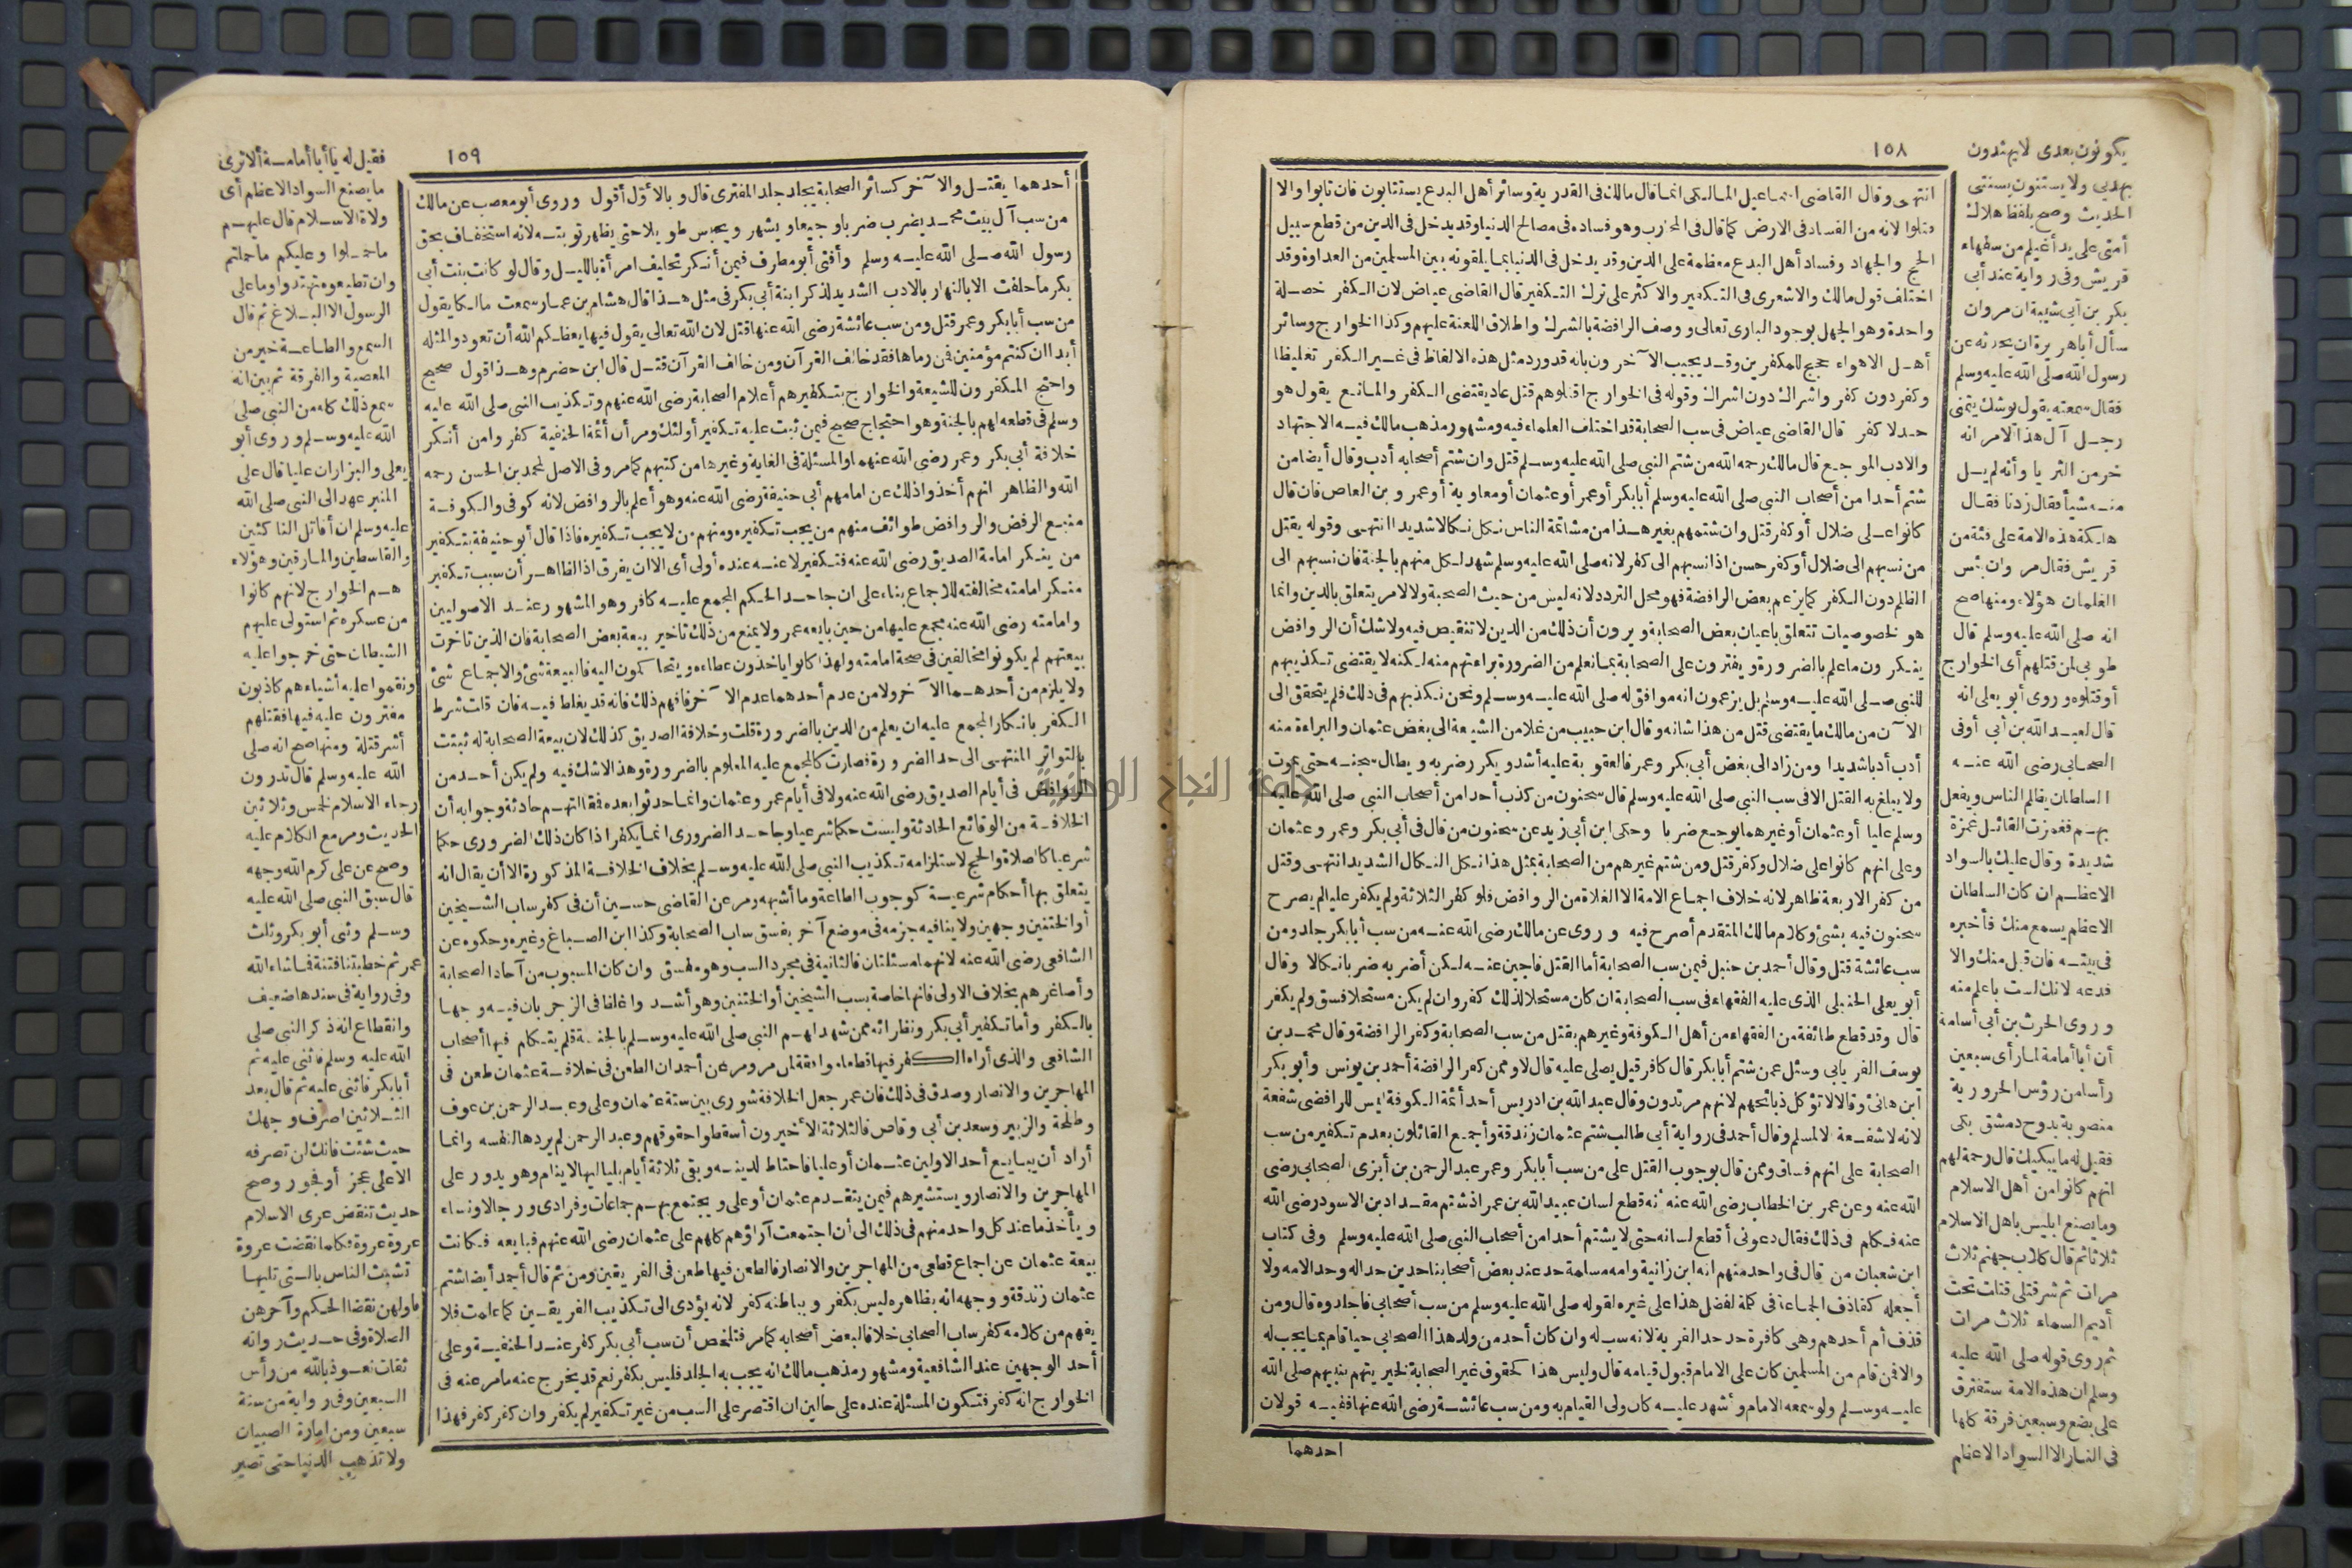 ١٥٨
انتهى وقال القاضى اسماعيل المالكى انما قال مالك فى القدرية وسائر أهل البدع يستتابون فان تابوا والا
قتلوا لانه من الفساد فى الارض كما قال فى المحارب وهو فساده فى مصالح الدنيا وقد يدخل فى الدين من قطع سبيل
الحج والجهاد وفساد أهل البدع معظمه على الدين وقد يدخل فى الدنيا بما يلقونه بين المسلمين من العداوة وقد
اختلف قول مالك والاشعرى فى التكفير والاكثر على ترك التكفير قال القاضى عياض لان الكفر خصلة
واحدة وهو الجهل بوجود البارى تعالى ووصف الرافضة بالشرك واطلاق اللعنة عليهم وكذا الخوارج وسائر
أهل الاهواء حجج للمكفرين وقد يجيب الآخرون بانه قد ورد مثل هذه الالفاظ فى غير الكفر تغليظا
وكفر دون كفر واشراك دون اشراك وقوله فى الخوارج اقتلوهم قتل عاد يقتضى الكفر والمانع يقول هو
حد لا كفر قال القاضى عياض فى سب الصحابة قد اختلف العلماء فيه ومشهور مذهب مالك فيه الاجتهاد
والادب الموجع قال مالك رحمه الله من شتم النبى صلى الله عليه وسلم قتل وان شتم أصحابه أدب وقال أيضا من
شتم أحدا من أصحاب النبى صلى الله عليه وسلم أبا بكر أو عمر أو عثمان أو معاوية أو عمرو بن العاص فان قال
كانوا على ضلال أو كفر قتل وان شتمهم بغير هذا من مشاتمة الناس نكل نكالا شديدا انتهى وقوله يقتل
من نسبهم الى ضلال أو كفر حسن اذا نسبهم الى كفر لانه صلى الله عليه وسلم شهد لكل منهم بالجنة فان نسبهم الى
الظلم دون الكفر كما يزعم بعض الرافضة فهو محل التردد لانه ليس من حيث الصحبة ولا لامر يتعلق بالدين وانما
هو لخصوصيات تتعلق باعيان بعض الصحابة ويرون أن ذلك من الدين لا تنقيص فيه ولا شك أن الروافض
ينكرون ما علم بالضرورة ويفترون على الصحابة بما نعلم من الضرورة براءتهم منه لكنه لا يقتضى تكذيبهم
للنبى صلى الله عليه وسلم بل يزعمون انه موافق له صلى الله عليه وسلم ونحن نكذبهم فى ذلك فلم يتحقق الى
الآن من مالك ما يقتضى قتل من هذا شانه وقال ابن حبيب من غلا من الشيعة الى بغض عثمان والبراءة منه
أدب أدبا شديدا ومن زاد الى بغض أبى بكر وعمر فالعقوبة عليه أشد ويكرر ضربه ويطال سجنه حتى يموت
ولا يبلغ به القتل الا فى سب النبى صلى الله عليه وسلم قال سحنون من كذب أحدا من أصحاب النبى صلى الله عليه
وسلم عليا أو عثمان أو غيرهما يوجع ضربا وحكى ابن أبى زيد عن سحنون من قال فى أبى بكر وعمر وعثمان
وعلى انهم كانوا على ضلال وكفر قتل ومن شتم غيرهم من الصحابة بمثل هذا نكل النكال الشديد انتهى وقتل
من كفر الاربعة ظاهر لانه خلاف اجماع الامة الا الغلاة من الروافض فلو كفر الثلاثة ولم يكفر عليا لم يصرح
سحنون فيه بشئ وكلام مالك المتقدم أصرح فيه وروى عن مالك رضى الله عنه من سب أبا بكر جلد ومن
سب عائشة قتل وقال أحمد بن حنبل فيمن سب الصحابة أما القتل فاجبن عنه لكن أضربه ضربا نكالا وقال
أبو يعلى الحنبلى الذى عليه الفقهاء فى سب الصحابة ان كان مستحلا لذلك كفر وان لم يكن مستحلا فسق ولم يكفر
قال وقد قطع طائفة من الفقهاء من أهل الكوفة وغيرهم بقتل من سب الصحابة وكفر الرافضة وقال محمد بن
يوسف الفريابى وسئل عمن شتم أبا بكر قال كافر قيل يصلى عليه قال لا وممن كفر الرافضة أحمد بن يونس وأبو بكر
ابن هانئ وقالا لا تؤكل ذبائحهم لانهم مرتدون وقال عبد الله بن ادريس أحد أئمة الكوفة ليس للرافضى شفعة
لانه لا شفعة الا لمسلم وقال أحمد فى رواية أبى طالب شتم عثمان زندقة وأجمع القائلون بعدم تكفير من سب
الصحابة على انهم فساق وممن قال بوجوب القتل على من سب أبا بكر وعمر عبد الرحمن بن أبزى الصحابى رضى
الله عنه وعن عمر بن الخطاب رضى الله عنه أنه قطع لسان عبيد الله بن عمر اذ شتم مقداد بن الاسود رضى الله
عنه فكلم فى ذلك فقال دعونى أقطع لسانه حتى لا يشتم أحدا من أصحاب النبى صلى الله عليه وسلم وفى كتاب
ابن شعبان من قال فى واحد منهم انه ابن زانية وامه مسلمة حد عند بعض أصحابنا حدين حدا له وحدا لامه ولا
أجعله كقاذف الجماعة فى كلمة لفضل هذا على غيره لقوله صلى الله عليه وسلم من سب أصحابى فاجلدوه قال ومن
قذف أم أحدهم وهى كافرة حد حد الفرية لانه سب له وان كان أحد من ولد هذا الصحابى حيا قام بما يجب له
والا فمن قام من المسلمين كان على الامام قبول قيامه قال وليس هذا كحقوق غير الصحابة لحرمتهم بنبيهم صلى الله
عليه وسلم ولو سمعه الامام وأشهد عليه كان ولى القيام به ومن سب عائشة رضى الله عنها ففيه قولان
احدهما
يكونون بعدى لا يهتدون
بهديى ولا يستنون بسنتى
الحديث وصح بلفظ هلاك
أمتى على يد أغيلم من سفهاء
قريش وفى رواية عند أبى
بكر بن أبى شيبة ان مروان
سأل أبا هريرة ان يحدثه عن
رسول الله صلى الله عليه وسلم
فقال سمعته يقول يوشك يتمنى
رجل آل هذا الامر انه
خر من الثريا وأنه لم يل
منه شيأ فقال زدنا فقال
هلكة هذه الامة على فتنة من
قريش فقال مروان بئس
الغلمان هؤلاء ومنها صح
انه صلى الله عليه وسلم قال
طوبى لمن قتلهم أى الخوارج
أو قتلوه وروى أبو يعلى انه
قال لعبد الله بن أبى أوفى
الصحابى رضى الله عنه
السلطان يظلم الناس ويفعل
بهم فغمزت القائل غمزة
شديدة وقال عليك بالسواد
الاعظم ان كان السلطان
الاعظم يسمع منك فأخبره
فى بيته فان قبل منك والا
فدعه لانك لست باعلم منه
وروى الحرث بن أبى أسامة
أن أبا أمامة لما رأى سبعين
رأسا من رؤس الحرورية
منصوبة بدوح دمشق بكى
فقيل له ما يبكيك قال رحمة لهم
انهم كانوا من أهل الاسلام
وما يصنع ابليس باهل الاسلام
ثلاثا ثم قال كلاب جهنم ثلاث
مرات ثم شر قتلى قتلت تحت
أديم السماء ثلاث مرات
ثم روى قوله صلى الله عليه
وسلم ان هذه الامة ستفترق
على بضع وسبعين فرقة كلها
فى النار الا السواد الاعظم
١٥٩
أحدهما يقتل والآخر كسائر الصحابة يجلد جلد المفترى قال وبالأول أقول وروى أبو مصعب عن مالك
من سب آل بيت محمد يضرب ضربا وجيعا ويشهر ويحبس طويلا حتى يظهر توبته لانه استخفاف بحق
رسول الله صلى الله عليه وسلم وأفتى أبو مطرف فيمن أنكر تحليف امرأة بالليل وقال لو كانت بنت أبى
بكر ما حلفت الا بالنهار بالادب الشديد لذكر ابنة أبى بكر فى مثل هذا قال هشام بن عمار سمعت مالكا يقول
من سب أبا بكر وعمر قتل ومن سب عائشة رضى الله عنها قتل لان الله تعالى يقول فيها يعظكم الله أن تعودوا لمثله
أبدا ان كنتم مؤمنين فمن رماها فقد خالف القرآن ومن خالف القرآن قتل قال ابن حضرم وهذا قول صحيح
واحتج المكفرون للشيعة والخوارج بتكفيرهم أعلام الصحابة رضى الله عنهم وتكذيب النبى صلى الله عليه
وسلم فى قطعه لهم بالجنة وهو احتجاج صحيح فيمن ثبت عليه تكفير أولئك ومر أن أئمة الحنفية كفروا من أنكر
خلافة أبى بكر وعمر رضى الله عنهما والمسئلة فى الغاية وغيرها من كتبهم كما مر وفى الاصل لمحمد بن الحسن رحمه
الله والظاهر انهم أخذوا ذلك عن امامهم أبى حنيفة رضى الله عنه وهو أعلم بالروافض لانه كوفى والكوفة
منبع الرفض والروافض طوائف منهم من يجب تكفيره ومنهم من لا يجب تكفيره فاذا قال أبو حنيفة بتكفير
من ينكر امامة الصديق رضى الله عنه فتكفير لاعنه عنده أولى أى الا ان يفرق اذ الظاهر أن سبب تكفير
منكر امامته مخالفته للاجماع بناء على ان جاحد الحكم المجمع عليه كافر وهو المشهور عند الاصوليين
وامامته رضى الله عنه مجمع عليها من حين بايعه عمر ولا يمنع من ذلك تاخير بيعة بعض الصحابة فان الذين تاخرت
بيعتهم لم يكونوا مخالفين فى صحة امامته ولهذا كانوا ياخذون عطاءه ويتحاكمون اليه فالبيعة شئ والاجماع شئ
ولا يلزم من أحدهما الآخر ولا من عدم أحدهما عدم الآخر فافهم ذلك فانه قد يغلط فيه فان قلت شرط
الكفر بانكار المجمع عليه ان يعلم من الدين بالضرورة قلت وخلافة الصديق كذلك لان بيعة الصحابة له ثبتت
بالتواتر المنتهى الى حد الضرورة فصارت كالمجمع عليه المعلوم بالضرورة وهذا لا شك فيه ولم يكن أحد من
الروافض فى أيام الصديق رضى الله عنه ولا فى أيام عمر وعثمان وانما حدثوا بعده فمقالتهم حادثة وجوابه أن
الخلافة من الوقائع الحادثة وليست حكما شرعيا وجاحد الضرورى انما يكفر اذا كان ذلك الضرورى حكما
شرعيا كالصلاة والحج لاستلزامه تكذيب النبى صلى الله عليه وسلم بخلاف الخلافة المذكورة الا أن يقال انه
يتعلق بها أحكام شرعية كوجوب الطاعة وما أشبهه ومر عن القاضى حسين أن فى كفر ساب الشيخين
أو الختنين وجهين ولا ينافيه جزمه فى موضع آخر بفسق ساب الصحابة وكذا ابن الصباغ وغيره وحكوه عن
الشافعى رضى الله عنه لانهما مسئلتان فالثانية فى مجرد السب وهو مفسق وان كان المسبوب من آحاد الصحابة
وأصاغرهم بخلاف الاولى فانها خاصة بسب الشيخين أو الختنين وهو أشد واغلظ فى الزجر بان فيه وجها
بالكفر وأما تكفير أبى بكر ونظرائه ممن شهد لهم النبى صلى الله عليه وسلم بالجنة فلم يتكلم فيها أصحاب
الشافعى والذى أراه الكفر فيها قطعا موافقة لمن مر ومر عن أحمد ان الطعن فى خلافة عثمان طعن فى
المهاجرين والانصار وصدق فى ذلك فان عمر جعل الخلافة شورى بين ستة عثمان وعلى وعبد الرحمن بن عوف
وطلحة والزبير وسعد بن أبى وقاص فالثلاثة الاخيرون أسقطوا حقوقهم وعبد الرحمن لم يردها لنفسه وانما
أراد أن يبايع أحد الاولين عثمان أو عليا فاحتاط لدينه وبقى ثلاثة أيام بلياليها لا ينام وهو يدور على
المهاجرين والانصار ويستشيرهم فيمن يتقدم عثمان أو على ويجتمع بهم جماعات وفرادى ورجالا ونساء
ويأخذ ما عند كل واحد منهم فى ذلك الى أن اجتمعت آراؤهم كلهم على عثمان رضى الله عنهم فبايعه فكانت
بيعة عثمان عن اجماع قطعى من المهاجرين والانصار فالطعن فيها طعن فى الفريقين ومن ثم قال أحمد أيضا شتم
عثمان زندقة ووجهه انه بظاهره ليس بكفر وبباطنه كفر لانه يؤدى الى تكذيب الفريقين كما علمت فلا
يفهم من كلامه كفر ساب الصحابى خلافا لبعض أصحابه كما مر فتلخص أن سب أبى بكر كفر عند الحنفية وعلى
أحد الوجهين عند الشافعية ومشهور مذهب مالك انه يجب به الجلد فليس بكفر نعم قد يخرج عنه ما مر عنه فى
الخوارج انه كفر فتكون المسئلة عنده على حالين ان اقتصر على السب من غير تكفير لم يكفر وان كفر كفر فهذا
فقيل له يا أبا أمامة ألا ترى
ما يصنع السواد الاعظم أى
ولاة الاسلام قال عليهم
ما حملوا وعليكم ما حملتم
وان تطيعوه تهتدوا وما على
الرسول الا البلاغ ثم قال
السمع والطاعة خير من
المعصية والفرقة ثم بين انه
سمع ذلك كله من النبى صلى
الله عليه وسلم وروى أبو
يعلى والبزار ان عليا قال على
المنبر عهد الى النبى صلى الله
عليه وسلم ان أقاتل الناكثين
والقاسطين والمارقين وهؤلاء
هم الخوارج لانهم كانوا
من عسكره ثم استولى عليهم
الشيطان حتى خرجوا عليه
ونقموا عليه أشياء هم كاذبون
مفترون عليه فيها فقتلهم
أشر قتلة ومنها صح انه صلى
الله عليه وسلم قال تدرون
رحاء الاسلام لخمس وثلاثين
الحديث ومر مع الكلام عليه
وصح عن على كرم الله وجهه
قال سبق النبى صلى الله عليه
وسلم وثنى أبو بكر وثلث
عمر ثم خطبتنا فتنة فما شاء الله
وفى رواية فى سندها ضعيف
وانقطاع انه ذكر النبى صلى
الله عليه وسلم فاثنى عليه ثم
أبا بكر فاثنى عليه ثم قال بعد
الثلاثين اصرف وجهك
حيث شئت فانك لن تصرفه
الا على عجز أو فجور وصح
حديث تنقض عرى الاسلام
عروة عروة فكلما نقضت عروة
تشبث الناس بالتى تليها
فاولهن نقضا الحكم وآخرهن
الصلاة وفى حديث رواته
ثقات نعوذ بالله من رأس
السبعين وفى رواية من سنة
سبعين ومن امارة الصبيان
ولا تذهب الدنيا حتى تصير
جامعة النجاح الوطنية